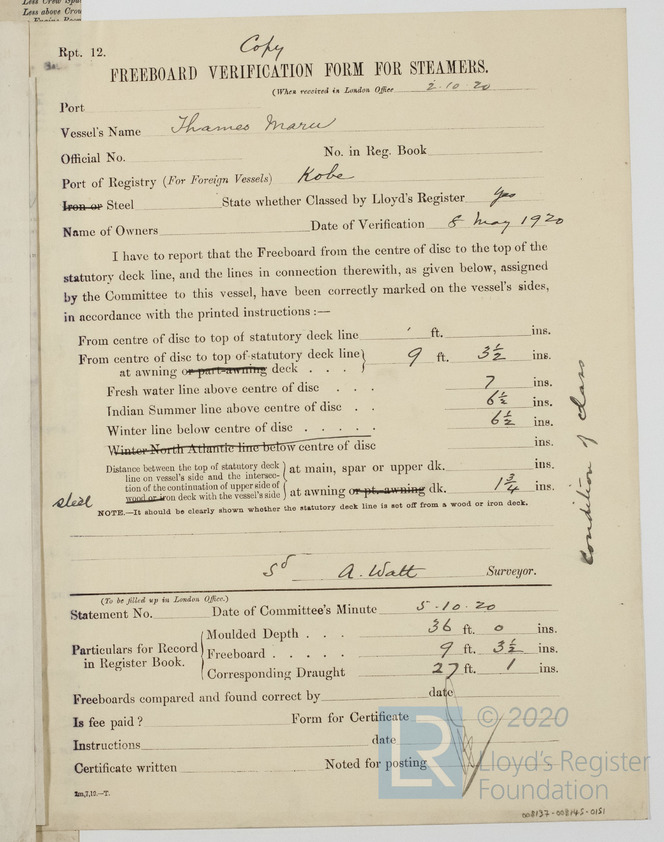 Less Crew Spa
Less above Crou
Rpt. 12.
Copy
FREEBOARD VERIFICATION FORM FOR STEAMERS.
(When received in London Office 2.10.20
Port
Vessel's Name Thames Maru
Official No. No. in Reg. Book
Port of Registry (For Foreign Vessels) Kobe
Iron or Steel State whether Classed by Lloyd's Register Yes
Name of Owners Date of Verification 8 May 1920
I have to report that the Freeboard from the centre of disc to the top of the
statutory deck line, and the lines in connection therewith, as given below, assigned
by the Committee to this vessel, have been correctly marked on the vessel's sides,
in accordance with the printed instructions :—
From centre of disc to top of statutory deck line ft. ins.
From centre of disc to top of statutory deck line
at awning or part-awning deck . . . 9 ft. 3½ ins.
Fresh water line above centre of disc . . . 7 ins.
Indian Summer line above centre of disc . . 6½ ins.
Winter line below centre of disc . . . . . 6½ ins.
Winter North Atlantic line below centre of disc ins.
Distance between the top of statutory deck
line on vessel's side and the intersec-
tion of the continuation of upper side of
wood or iron deck with the vessel's side
at main, spar or upper dk. ins.
at awning or pt. awning dk. 1¾ ins.
steel
NOTE.—It should be clearly shown whether the statutory deck line is set off from a wood or iron deck.
condition of class
Sd A. Watt Surveyor.
(To be filled up in London Office.)
Statement No. Date of Committee's Minute 5.10.20
Particulars for Record
in Register Book.
Moulded Depth . . . 36 ft. 0 ins.
Freeboard . . . . . 9 ft. 3½ ins.
Corresponding Draught 27 ft. 1 ins.
Freeboards compared and found correct by date
Is fee paid ? Form for Certificate
Instructions date
Certificate written Noted for posting
2m,7,19.—T.
LR
© 2020
Lloyd's Register
Foundation
008137-008145-0151